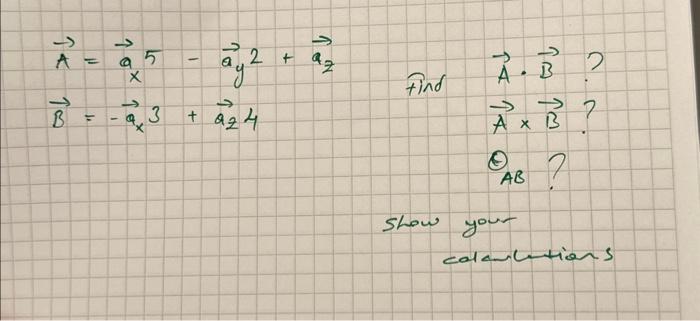 A⃗ = a⃗x5 - a⃗y2 + a⃗z
B⃗ = -a⃗x3 + a⃗z4
Find A⃗ . B⃗ ?
A⃗ x B⃗ ?
ΘAB ?
Show your
calculations